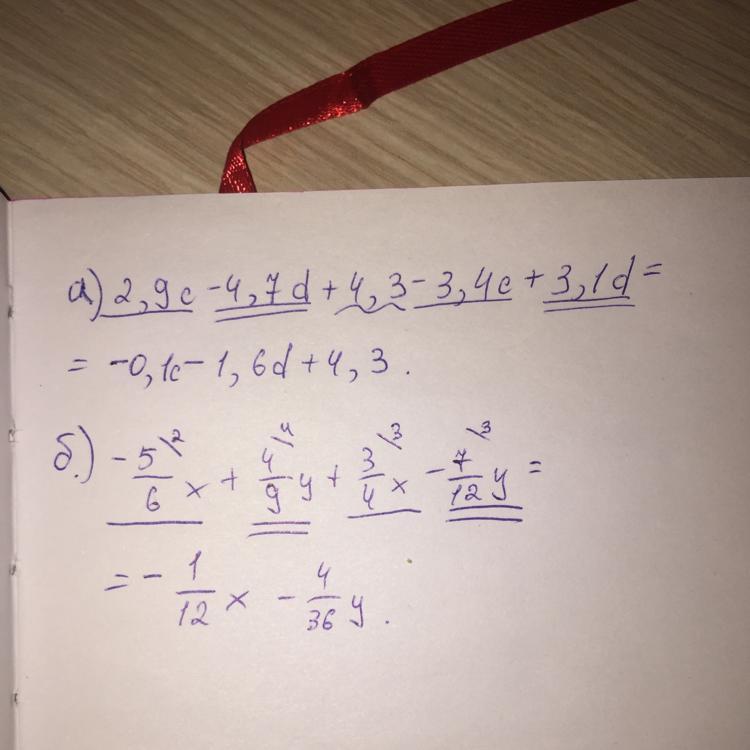 а) 2,9c - 4,7d + 4,3 - 3,4c + 3,1d =
= -0,1c - 1,6d + 4,3.
б.) -5/6 \2 x + 4/9 \4 y + 3/4 \3 x - 7/12 \3 y =
= - 1/12 x - 4/36 y.